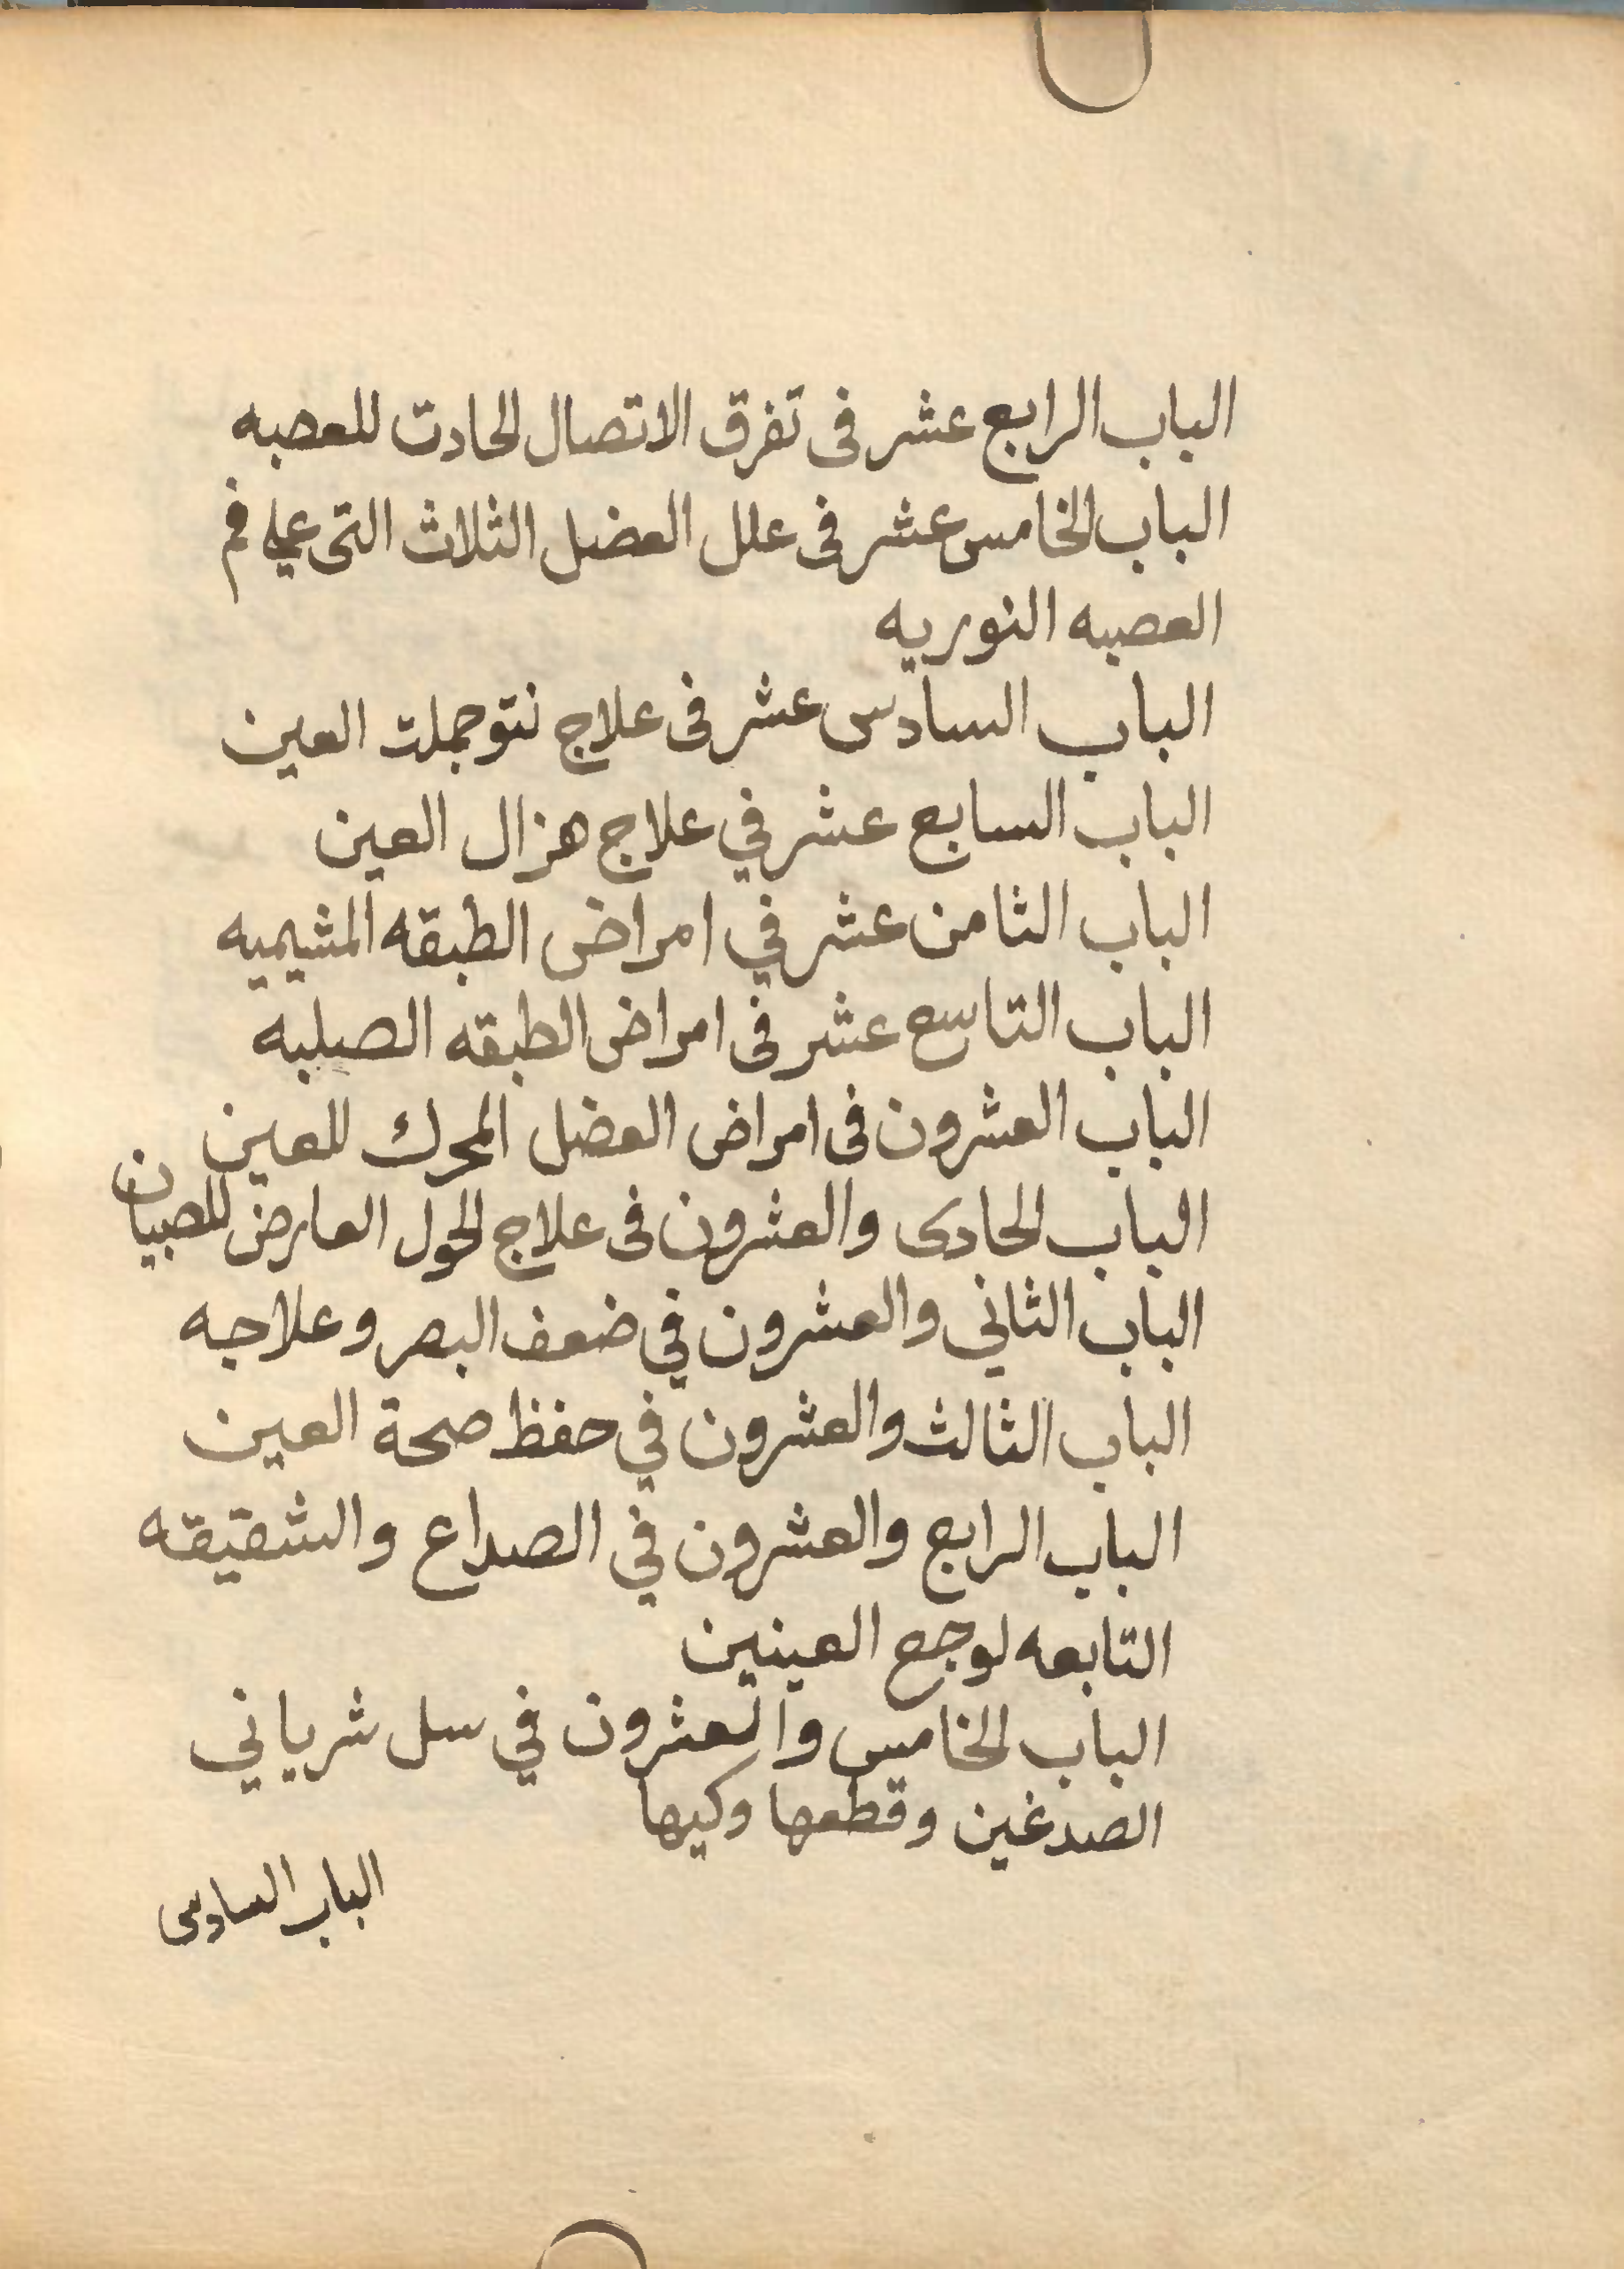 الباب الرابع عشر فى تفرق الاتصال الحادث للعصبه
الباب الخامس عشر فى علل العضل الثلاث التى على فم
العصبه النوريه
الباب السادس عشر فى علاج نتو جملت العين
الباب السابع عشر في علاج هزال العين
الباب الثامن عشر في امراض الطبقه المشيميه
الباب التاسع عشر فى امراض الطبقه الصلبه
الباب العشرون فى امراض العضل المحرك للعين
الباب الحادى والعشرون فى علاج الحول العارض للصبيان
الباب الثاني والعشرون في ضعف البصر وعلاجه
الباب الثالث والعشرون في حفظ صحة العين
الباب الرابع والعشرون في الصداع والشقيقه
التابعه لوجع العينين
الباب الخامس والعشرون في سل شرياني
الصدغين وقطعها وكيها
الباب السادس